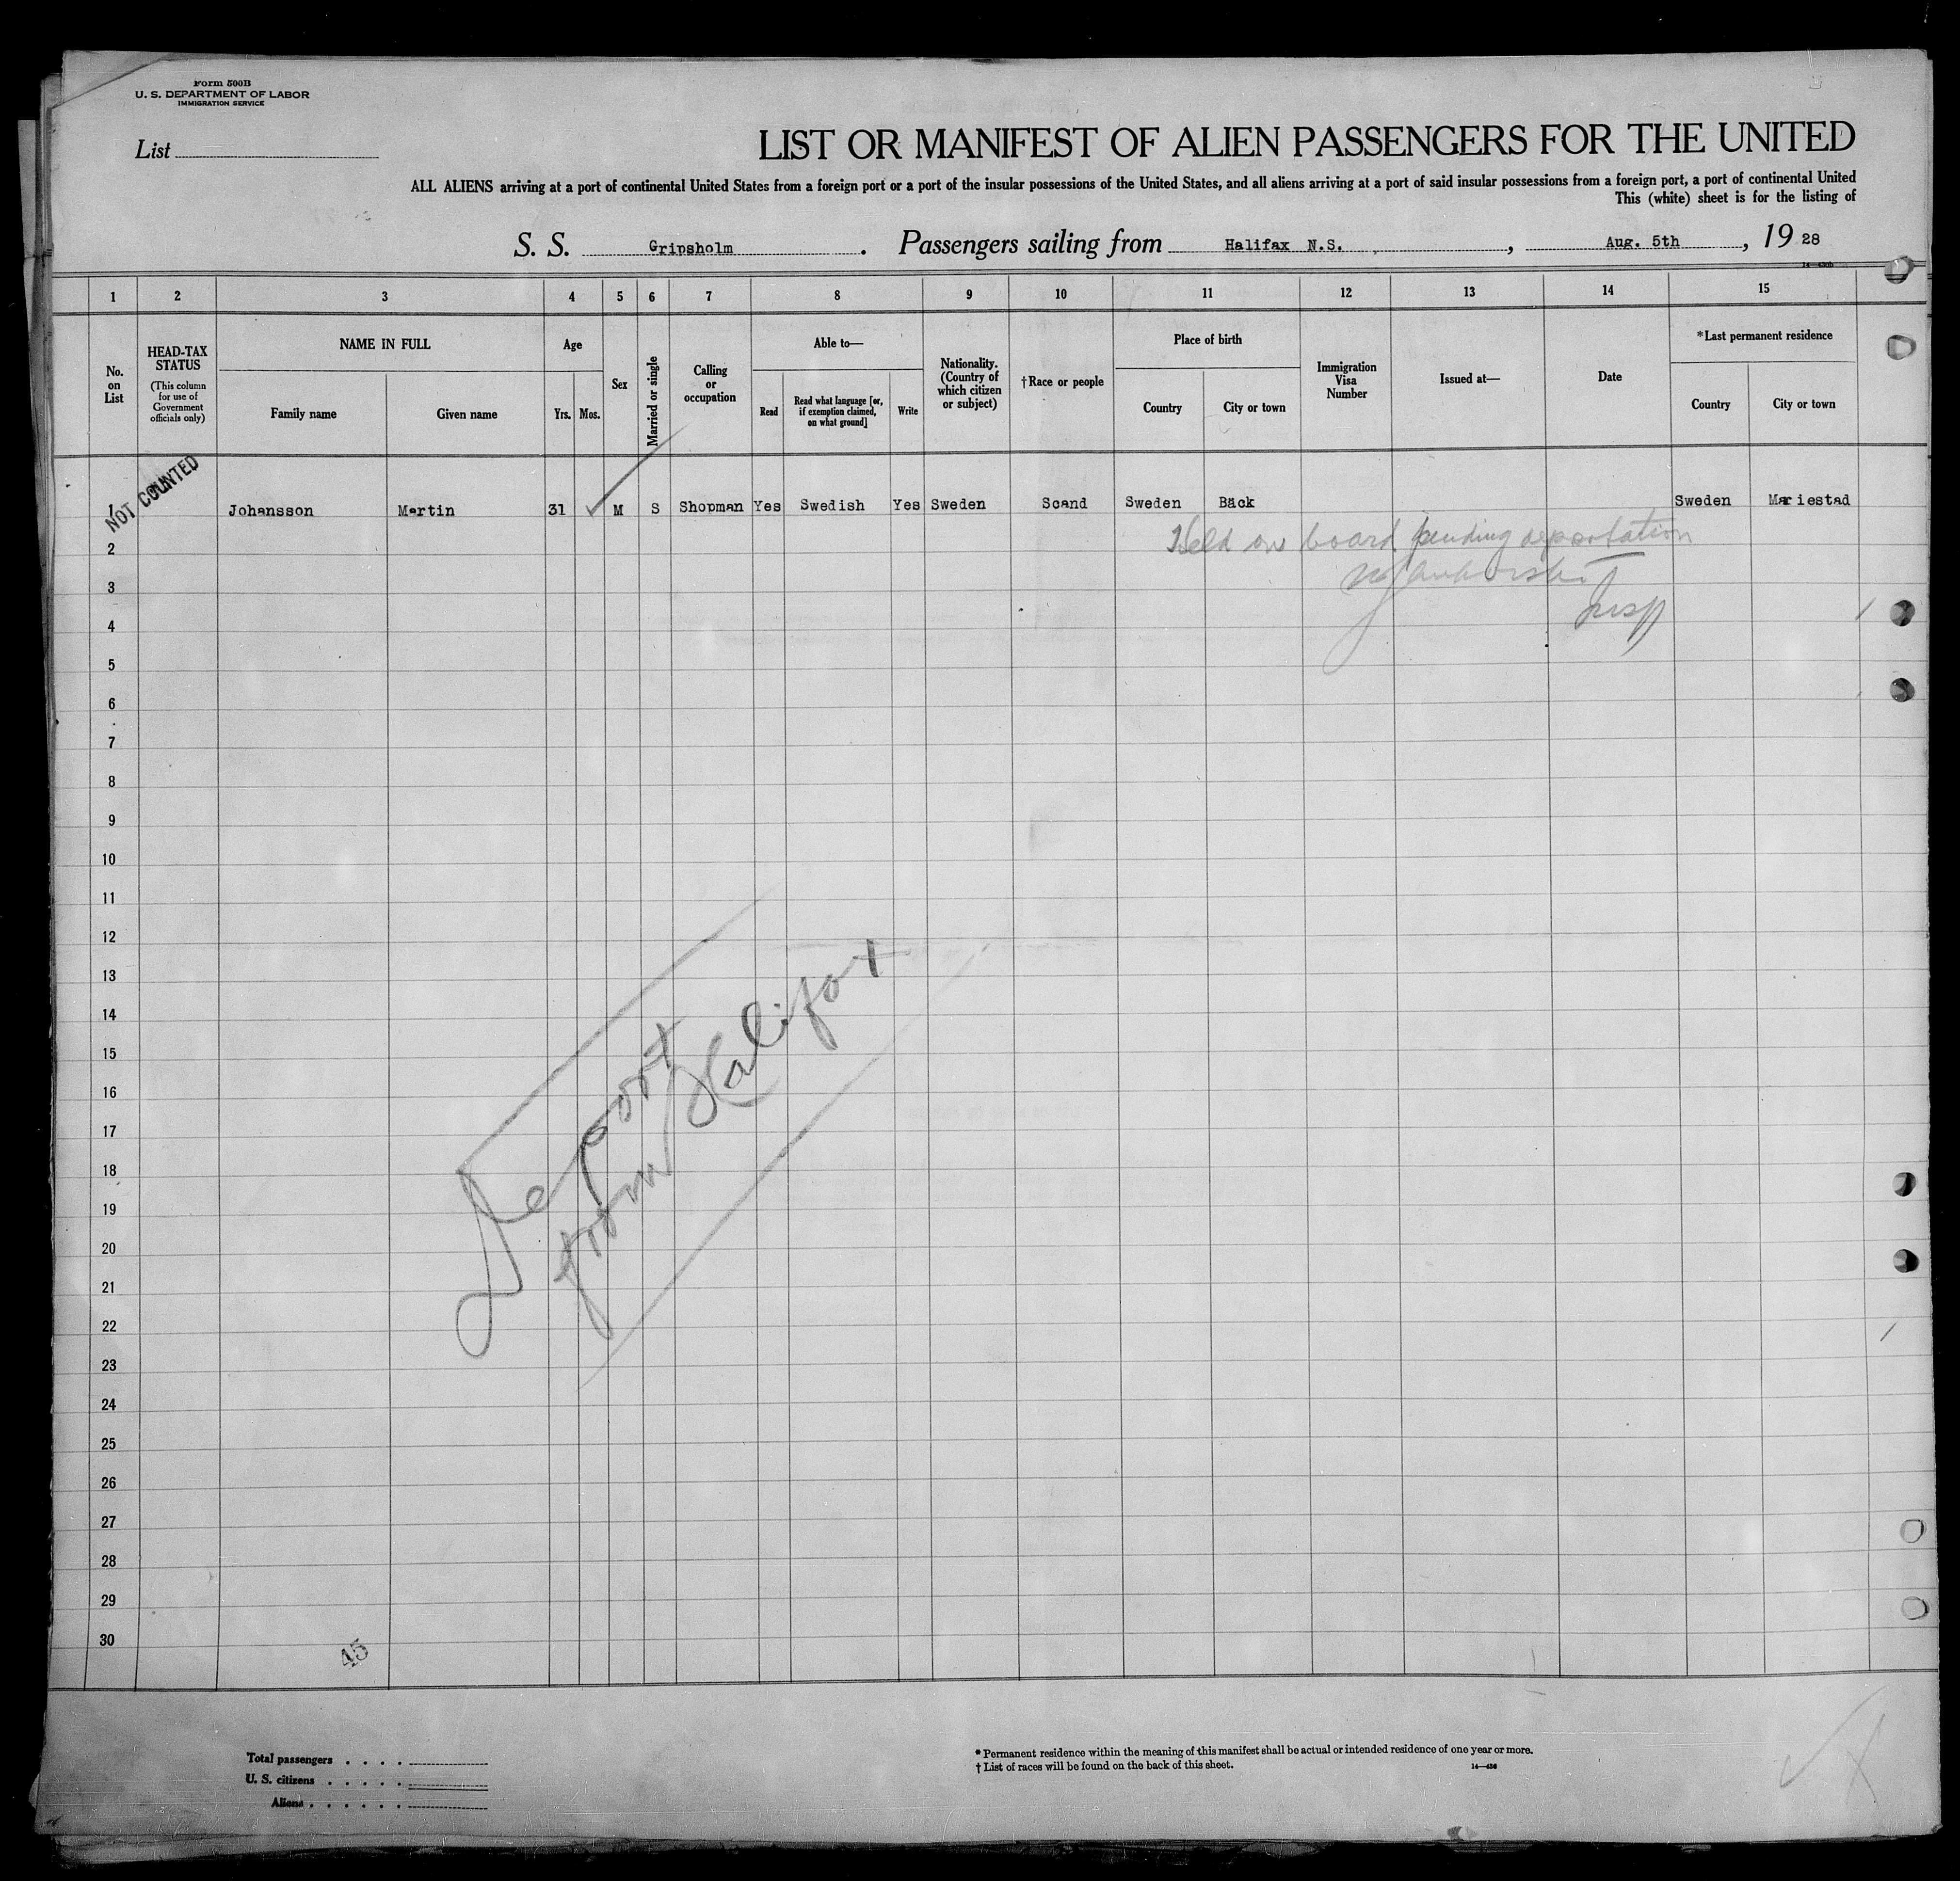 Form 500B
U. S. DEPARTMENT OF LABOR
IMMIGRATION SERVICE
List
LIST OR MANIFEST OF ALIEN PASSENGERS FOR THE UNITED
ALL ALIENS arriving at a port of continental United States from a foreign port or a port of the insular possessions of the United States, and all aliens arriving at a port of said insular possessions from a foreign port, a port of continental United
This (white) sheet is for the listing of
S. S. Gripsholm. Passengers sailing from Halifax N.S., Aug. 5th, 19 28
1 2 3 4 5 6 7 8 9 10 11 12 13 14 15
No. on List
HEAD-TAX STATUS
(This column for use of Government officials only)
NAME IN FULL
Family name
Given name
Age
Yrs.
Mos.
Sex
Married or single
Calling or occupation
Able to—
Read
Read what language [or, if exemption claimed, on what ground]
Write
Nationality. (Country of which citizen or subject)
†Race or people
Place of birth
Country
City or town
Immigration Visa Number
Issued at—
Date
*Last permanent residence
Country
City or town
NOT COUNTED
1 Johansson Martin 31 M S Shopman Yes Swedish Yes Sweden Scand Sweden Bäck Sweden Mariestad
2
Held on board pending deportation
3
4
Insp
5
6
7
8
9
10
11
12
13
14
15
16
17
18
19
20
21
22
23
24
25
26
27
28
29
30
Deport
from Halifax
45
Total passengers
U. S. citizens
Aliens
* Permanent residence within the meaning of this manifest shall be actual or intended residence of one year or more.
† List of races will be found on the back of this sheet.